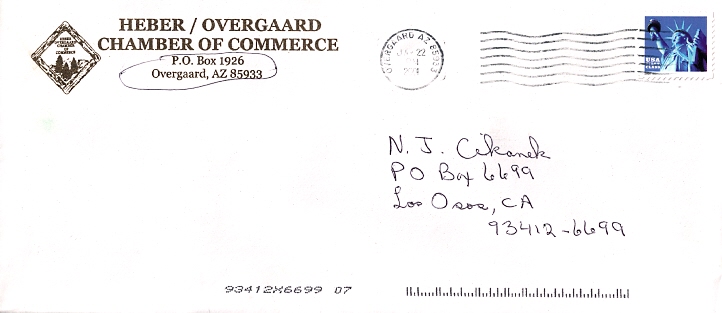 HEBER / OVERGAARD
CHAMBER OF COMMERCE
P.O. Box 1926
Overgaard, AZ 85933
HEBER
OVERGAARD
CHAMBER
OF
COMMERCE
OVERGAARD AZ 85933
22
USA
N. J. Cikanek
PO Box 6699
Los Osos, CA
93412-6699
93412X6699 07